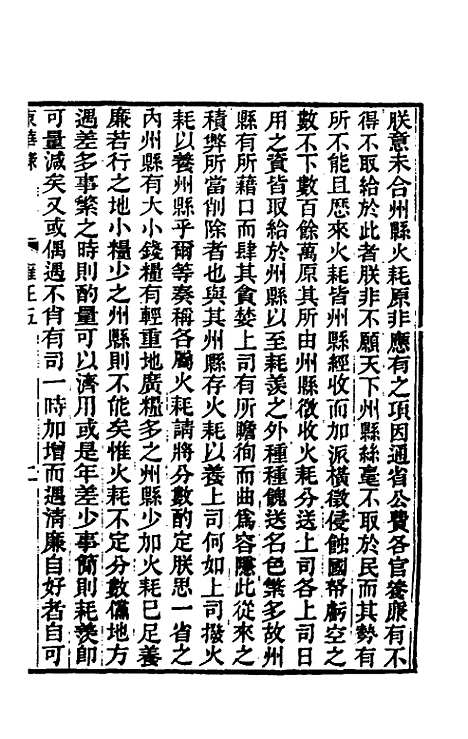 朕意未合州縣火耗原非應有之項因通省公費各官養廉有不
得不取給於此者朕非不願天下州縣絲毫不取於民而其勢有
所不能且歷來火耗皆州縣經收而加派橫徵侵蝕國帑虧空之
數不下數百餘萬原其所由州縣徵收火耗分送上司各上司日
用之資皆取給於州縣以至耗羨之外種種餽送名色繁多故州
縣有所藉口而肆其貪婪上司有所瞻徇而曲爲容隱此從來之
積弊所當削除者也與其州縣存火耗以養上司何如上司撥火
耗以養州縣乎爾等奏稱各屬火耗請將分數酌定朕思一省之
內州縣有大小錢糧有輕重地廣糧多之州縣少加火耗已足養
廉若行之地小糧少之州縣則不能矣惟火耗不定分數儻地方
遇差多事繁之時則酌量可以濟用或是年差少事簡則耗羨卽
可量減矣又或偶遇不肖有司一時加增而遇清廉自好者自可
東華錄 雍正五 二